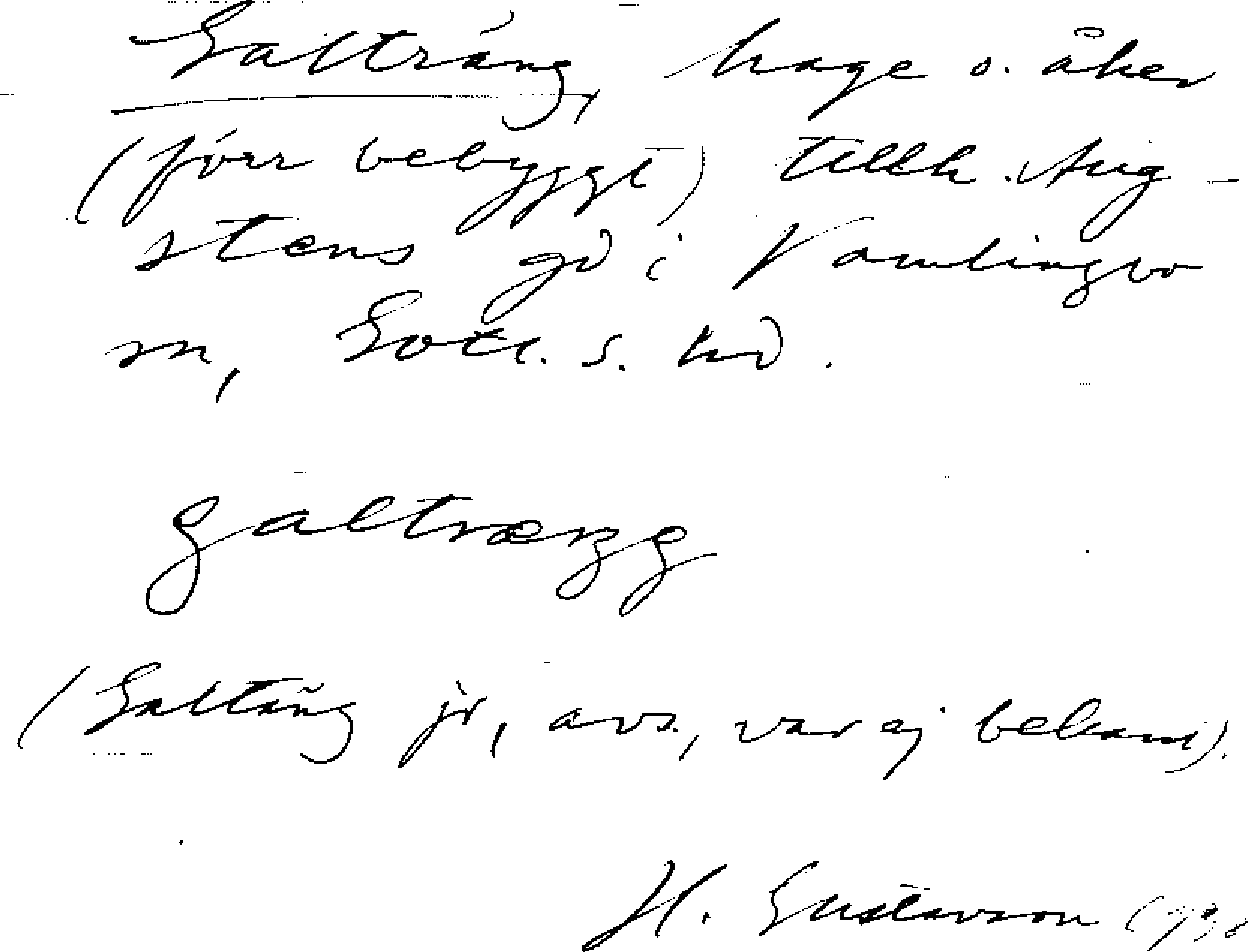 Galträng, hage o. åker
(förr bebyggt) tillh. Aug-
stens gd i Vamlingbo
sn, Gotl. s. hd.
galtræŋg
(Galtäng jr, avs., var ej bekant).
H. Gustavson